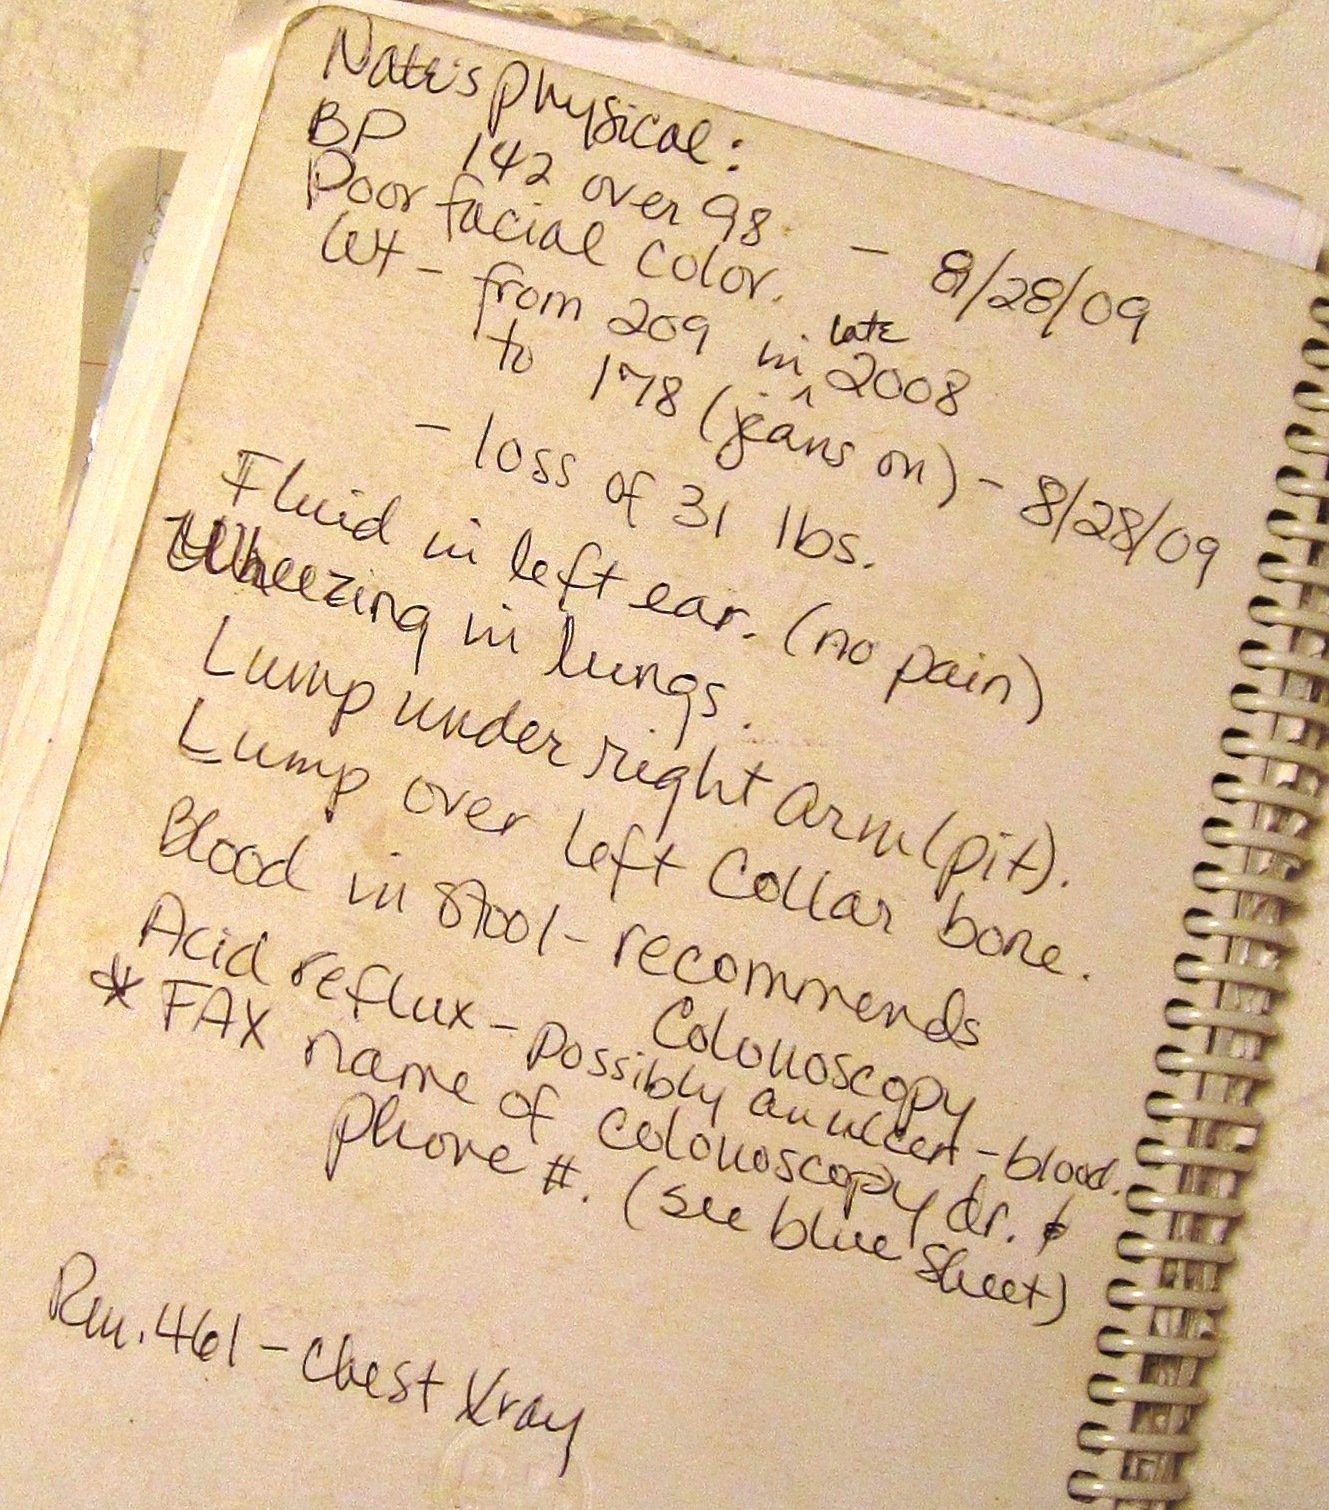 Nate's physical:
BP 142 over 98. - 8/28/09
Poor facial color.
Wt - from 209 in late 2008
to 178 (jeans on) - 8/28/09
- loss of 31 lbs.
Fluid in left ear. (no pain)
Wheezing in lungs.
Lump under right arm(pit).
Lump over left collar bone.
Blood in stool - recommends
Colonoscopy
Acid reflux - possibly an ulcer - blood.
* FAX name of colonoscopy dr. &
phone #. (see blue sheet)
Rm. 461 - Chest Xray